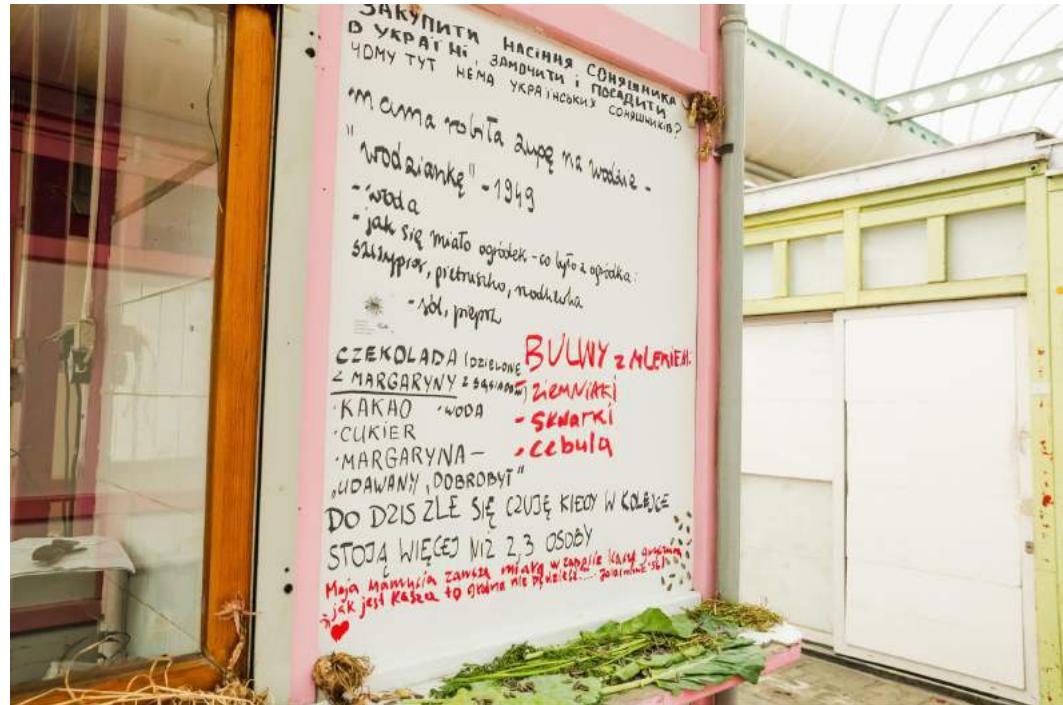 ЗАКУПИТИ НАСІННЯ СОНЯШНИКА
В УКРАЇНІ, ЗАМОЧИТИ І ПОСАДИТИ
ЧОМУ ТУТ НЕМА УКРАЇНСЬКИХ СОНЯШНИКІВ?
mama robiła zupę na wodzie -
"wodziankę" - 1949
- woda
- jak się miało ogródek - co było z ogródka:
szczypior, pietruszka, rzodkiewka
- sól, pieprz
CZEKOLADA (DZIELONE
Z MARGARYNY Z SĄSIADEM)
· KAKAO · WODA
· CUKIER
· MARGARYNA -
"UDAWANY „DOBROBYT"
BULWY z MLEKIEM:
- ZIEMNIAKI
- SKWARKI
- cebula
DO DZIS ZLE SIĘ CZUJĘ KIEDY W KOLEJCE
STOJĄ WIĘCEJ NIŻ 2,3 OSOBY
Moja Mamusia zawsze miała w zapasie kaszę gryczaną
jak jest kasza to głodna nie będziesz....